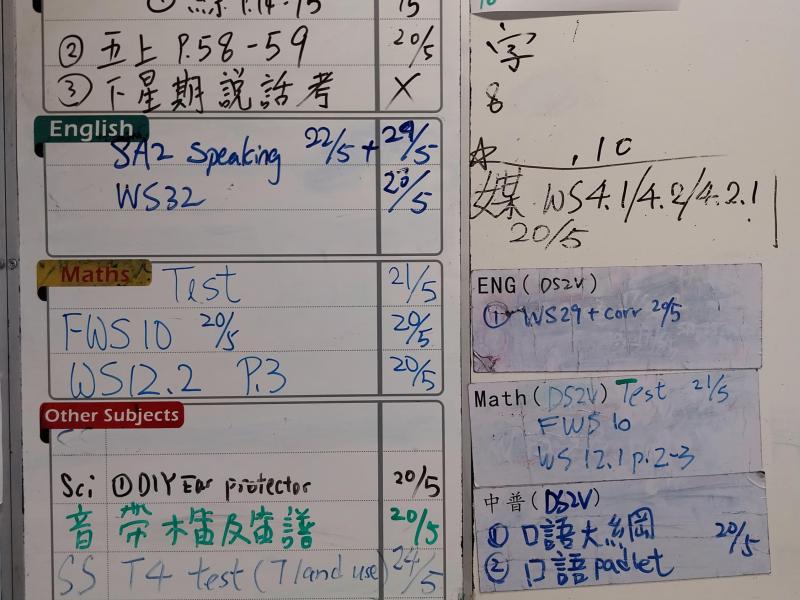 ② 五上 P.58-59 20/5
③ 下星期說話考 X
English
SA2 Speaking 22/5 + 29/5
WS32 20/5
Maths
Test 21/5
FWS10 20/5 20/5
WS12.2 P.3 20/5
Other Subjects
Sci ①DIY Ear protector 20/5
音 帶木笛及笛譜 20/5
SS T4 test (7 land use) 24/5
字
8
☆ , 10
媒 WS4.1/4.2/4.2.1
20/5
ENG(DS2V)
① WS29 + corr 20/5
Math(DS2V) Test 21/5
FWS 10
WS 12.1 p.2-3
中普(DS2V)
① 口語大綱 20/5
② 口語padlet